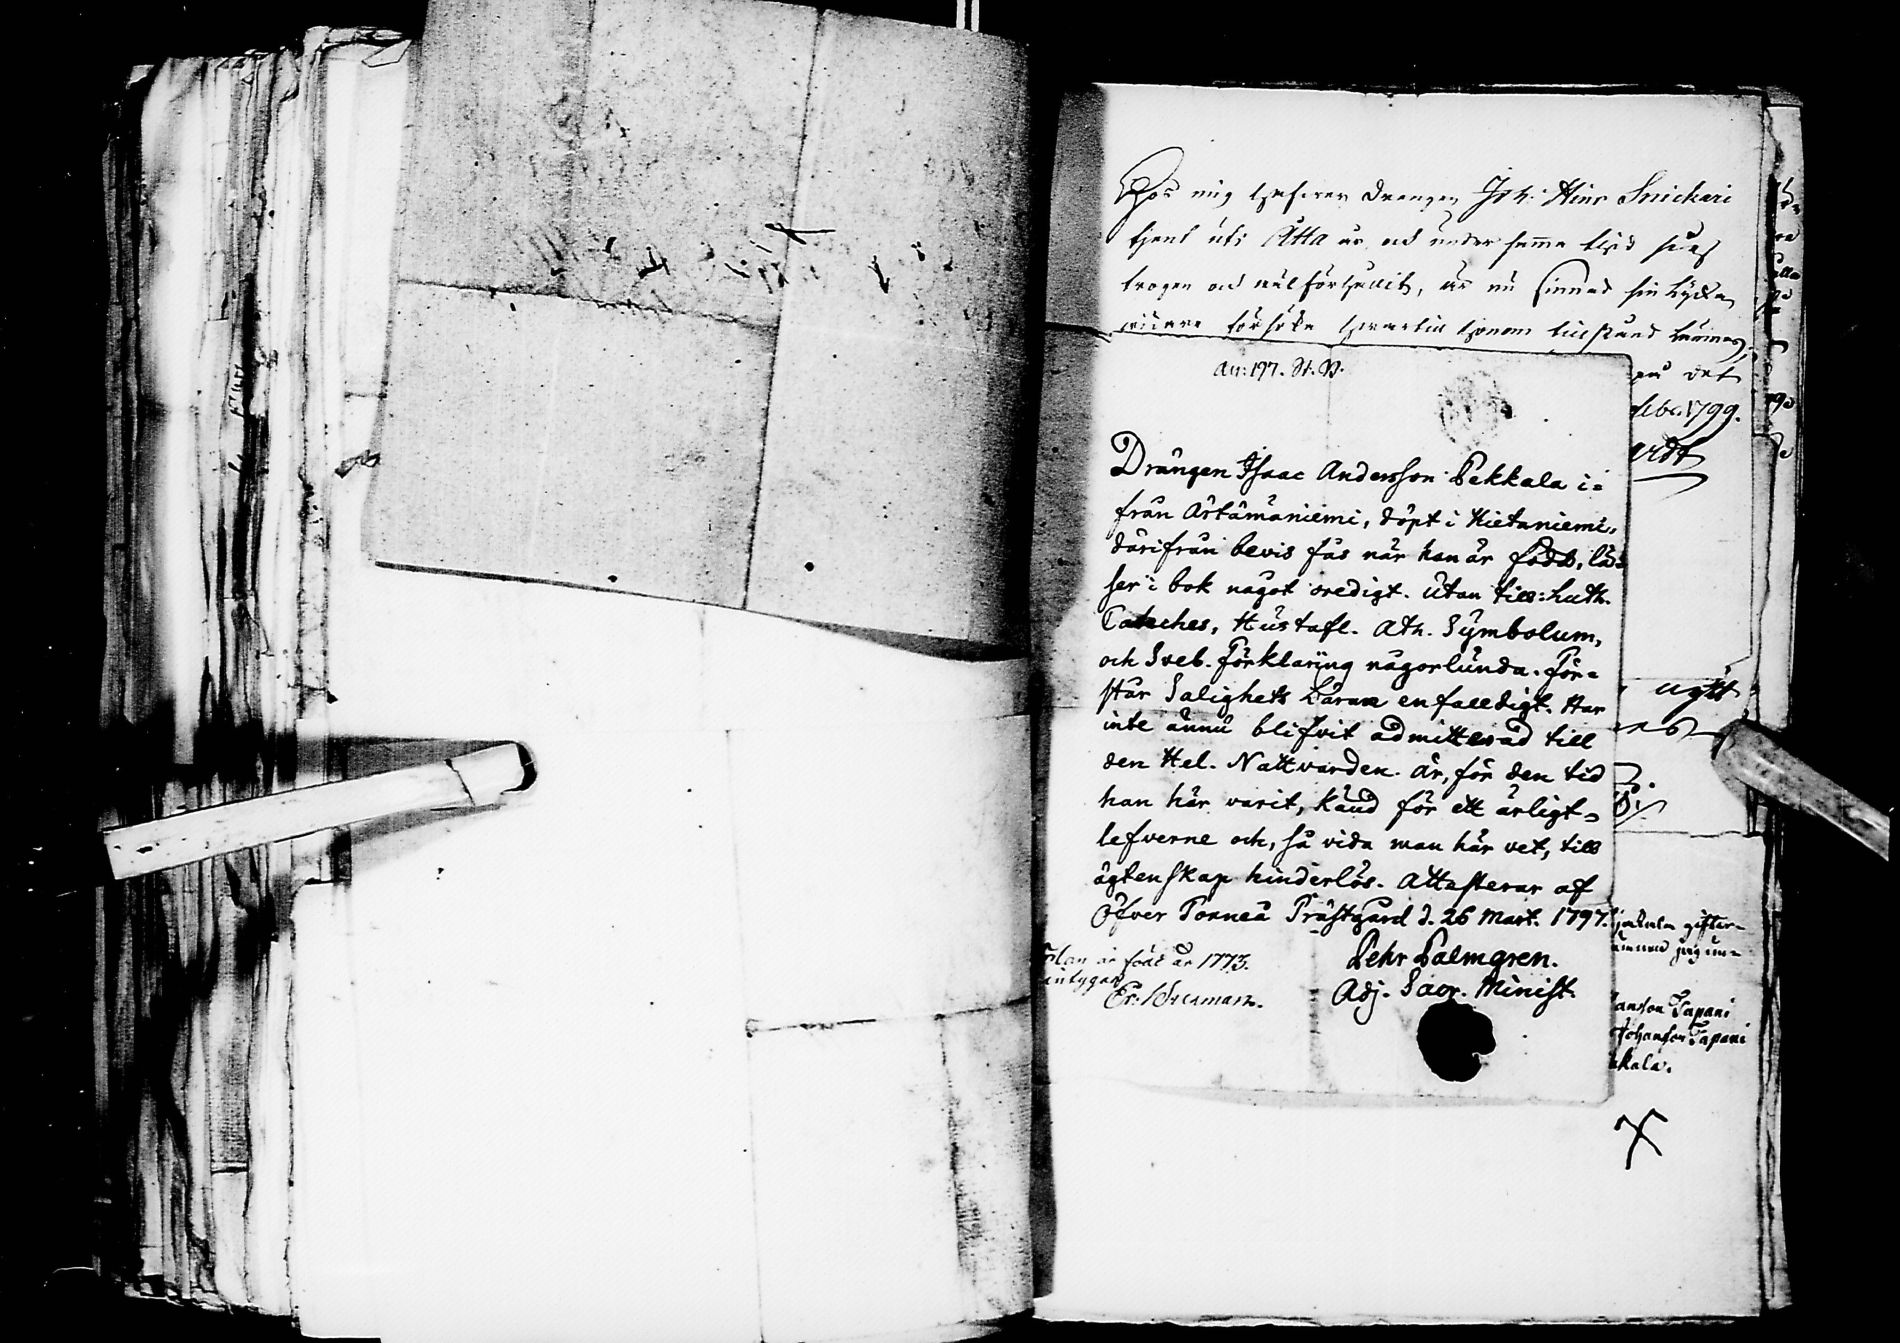 Hos mig hafwer Drengen Joh: Hinr Snickari
tjent uti Åtta år, och under samma tijd sig
trogen och wäl förhållit, är nu sinnad sin lycka
widare försöka
på det
1799.
An: 197. St. B.
Drängen Isaac Andersson Pekkala i=
från Ärtämäniemi, döpt i Hietaniemi,
därifrån bevis fås när han är född, lä=
ser i bok något oredigt. Utan till: Luth.
Cateches, Hustafl. Ath. Symbolum,
och Sveb. Förklaring någorlunda. För=
står Salighets Läran enfaldigt. Har
inte ännu blifvit admitterad till
den Hel. Nattvarden. Är, för den tid
han här varit, känd för ett ärligt=
lefverne och, så vida man här vet, till
ägtenskap hinderlös. Attesterar af
Öfver Torneå Prästgård d. 26 Mart. 1797.
Pehr Palmgren.
Adj. Sacr. Minist.
Han är född år 1773.
intygar
gifter=
Tapani
Johansson Tapani
kala.